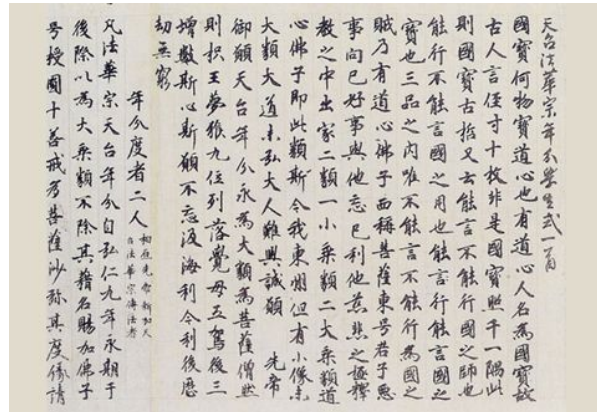 天台法華宗年分學生式一首
國寶何物寶道心也有道心人名為國寶故
古人言徑寸十枚非是國寶照千一隅此
則國寶古哲又云能言不能行國之師也
能行不能言國之用也能行能言國之
寶也三品之內唯不能言不能行為國之
賊乃有道心佛子西稱菩薩東号君子惡
事向己好事與他忘己利他慈悲之極釋
教之中出家二類一小乘類二大乘類道
心佛子即此類斯今我東州但有小像未
大類大道未弘大人難興誠願 先帝
御願天台年分永為大類為菩薩僧然
則枳王夢猴九位列落覺母五駕後三
增數斯心斯願不忘汲海利今利後歷
劫無窮
年分度者二人
柏原先帝新加天
台法華宗傳法者
凡法華宗天台年分自弘仁九年永期于
後際以為大乘類不除其籍名賜加佛子
号授圓十善戒為菩薩沙彌其度緣請